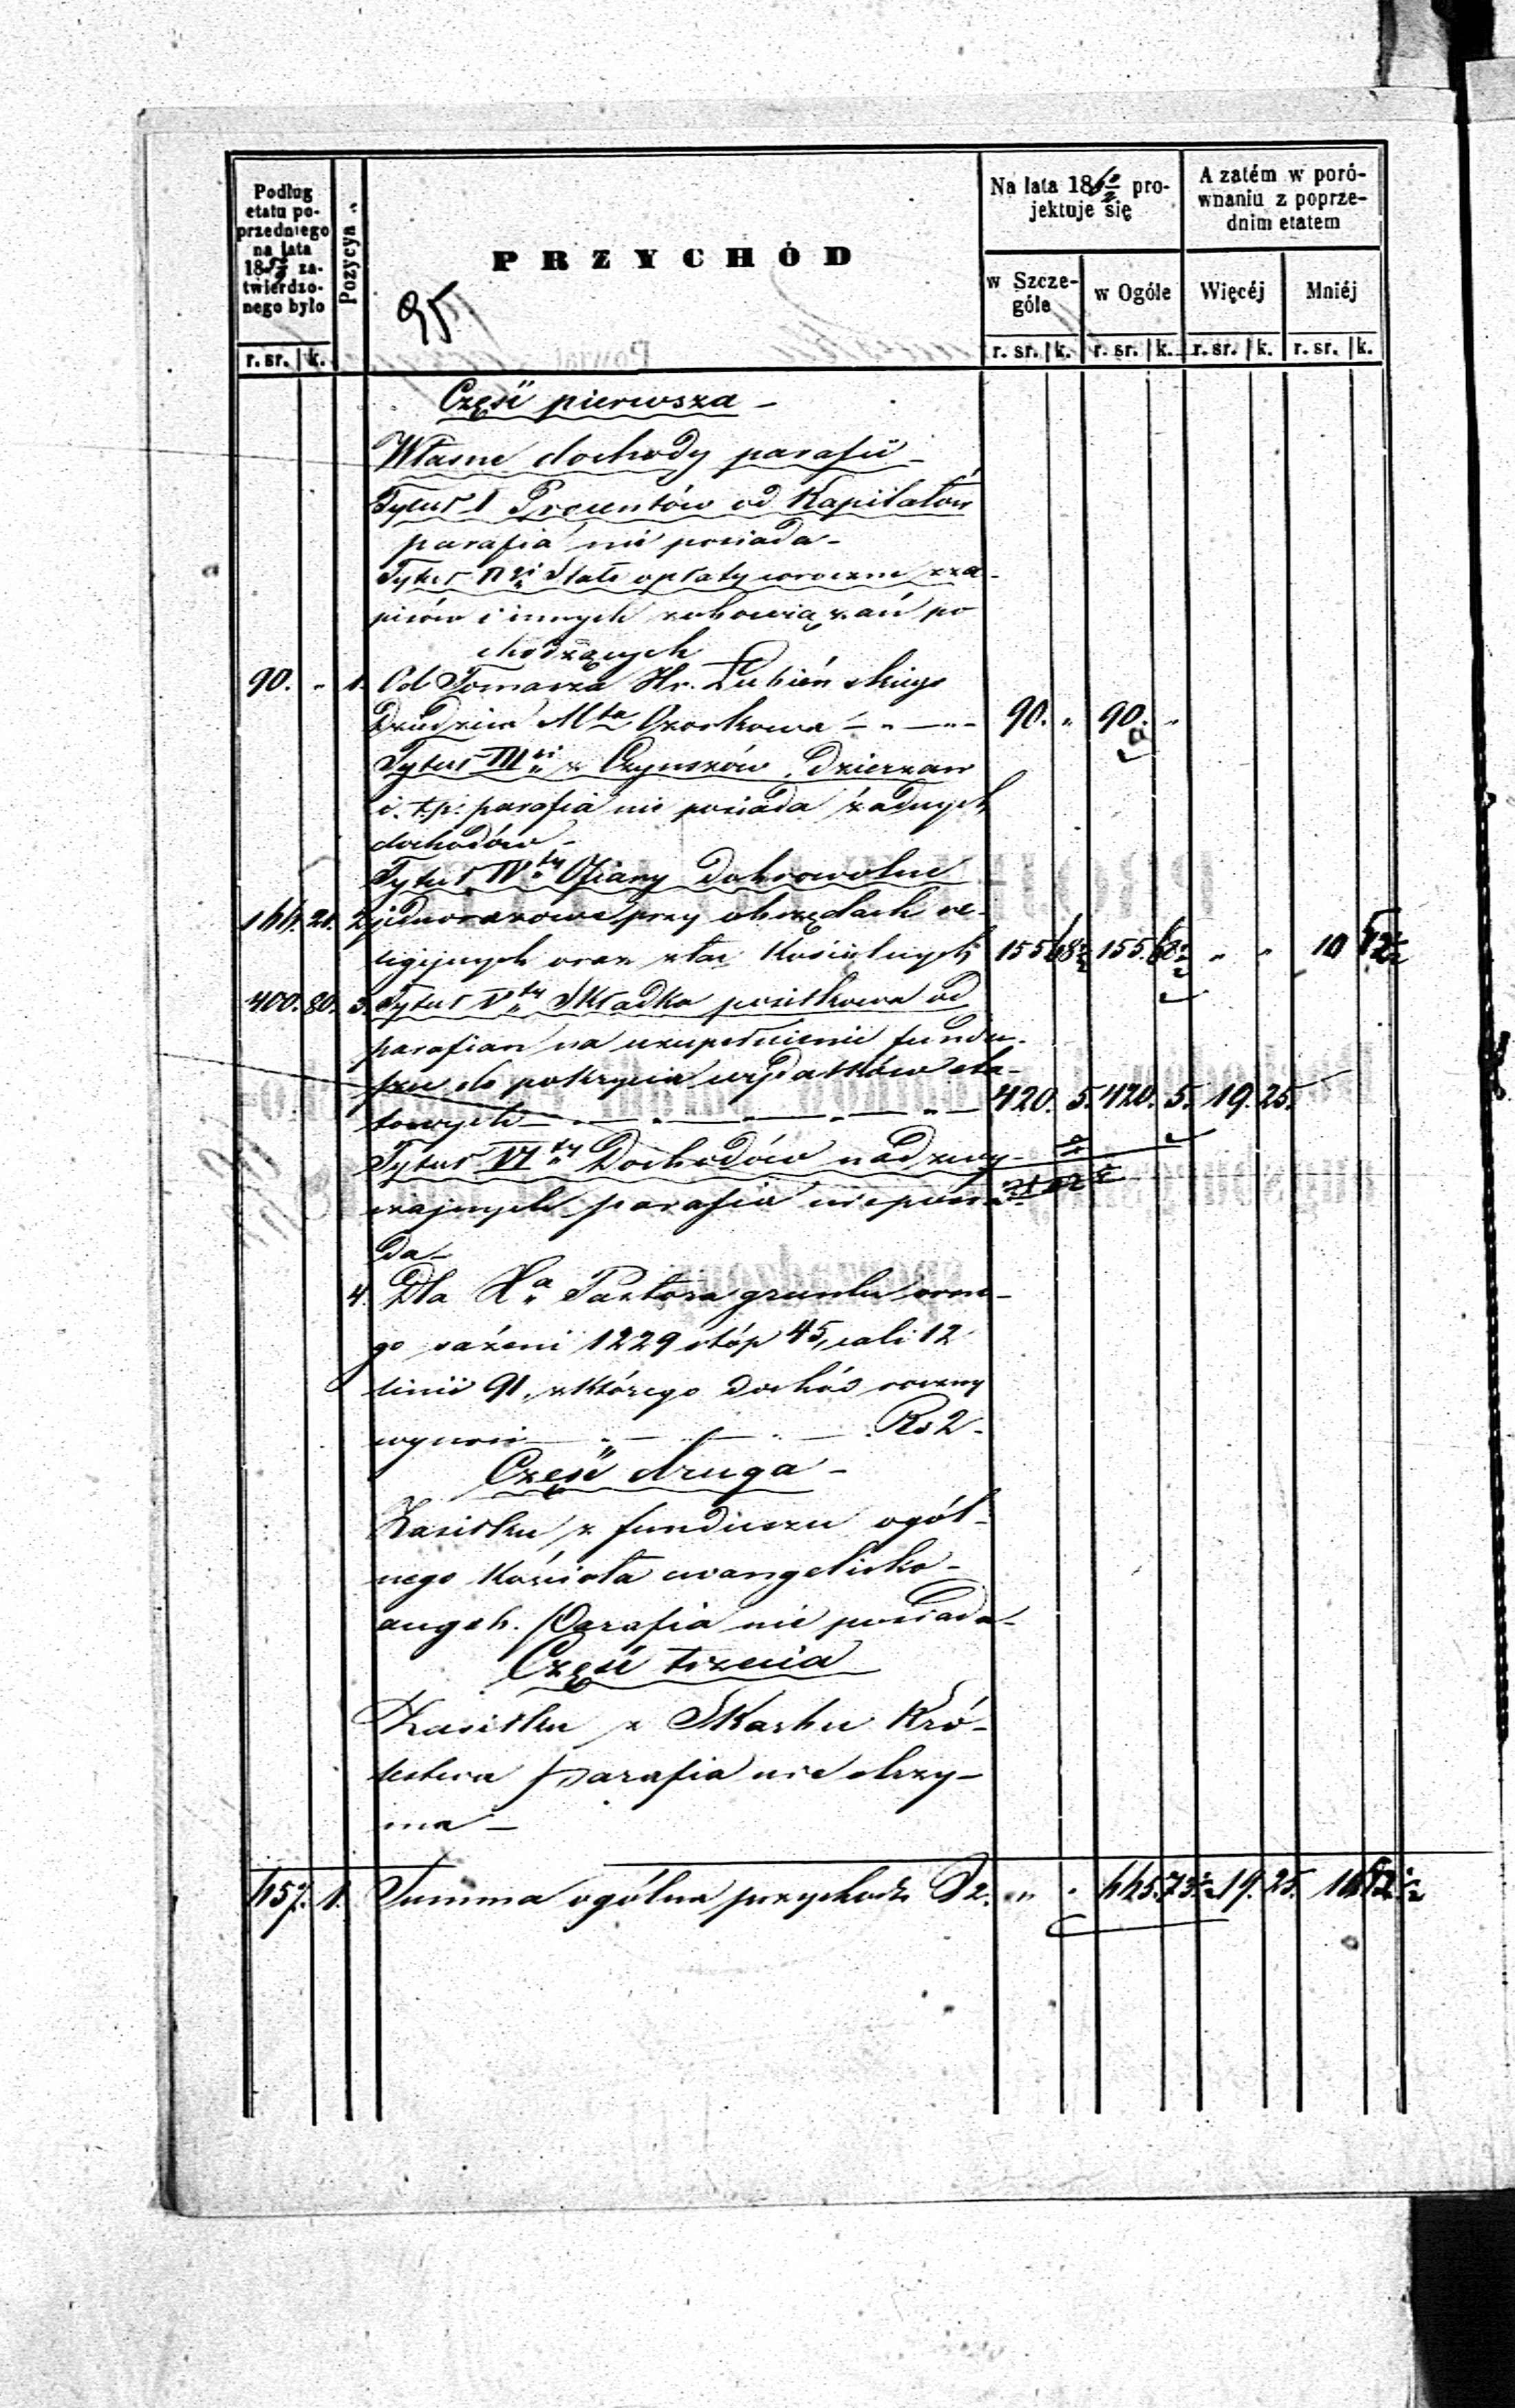 Podług etatu poprzedniego na lata 18 zatwierdzonego było
Pozycya
PRZYCHÓD
Na lata 1860/2 projektuje się
A zatém w porównaniu z poprzednim etatem
w Szczególe
w Ogóle
Więcéj
Mniéj
95
r. sr. k. r. sr. k. r. sr. k. r. sr. k. r. sr. k.
Część pierwsza -
Własne dochody parafii -
Tytuł I Procentów od Kapitałów
parafia nie posiada -
Tytuł II gi Stałe opłaty coroczne z za-
pisów i innych zobowiązań po
chodzących
90. " 1. Od Tomasza Hr. Łubieńskiego
Dziedzica Mta Ozorkowa 90. " 90. "
Tytuł III ci z Czynszów, dzierzaw
i. t.p. parafia nie posiada żadnych
dochodów -
Tytuł IV ty Ofiary dobrowolne
166. 21. 2. jednorazowe przy obrzędach re-
ligijnych oraz z ław Kościelnych 155 68½ 155. 68½ " " 10 52½
400. 80. 3. Tytuł V ty Składka posiłkowa od
parafian na uzupełnienie fundu-
szu do pokrycia wydatków eta-
towych 420. 5. 420. 5. 19. 25.
Tytuł VI ty Dochodów nadzwy-
czajnych parafia nieposia-
da -
4. Dla Xa Pastora gruntu orne-
go sażeni 1229 stóp 45, cali 12
linii 91, z którego dochód roczny
wynosi Rs 2 -
Część druga -
Zasiłku z funduszu ogól-
nego Kościoła ewangelicko-
augsb. Parafia nie posiada -
Część trzecia
Zasiłku z Skarbu Kró-
lestwa parafia nie otrzy-
ma -
657. 1. Summa ogólna przychodu Rs. " " 665. 73½ 19. 25. 10 52½